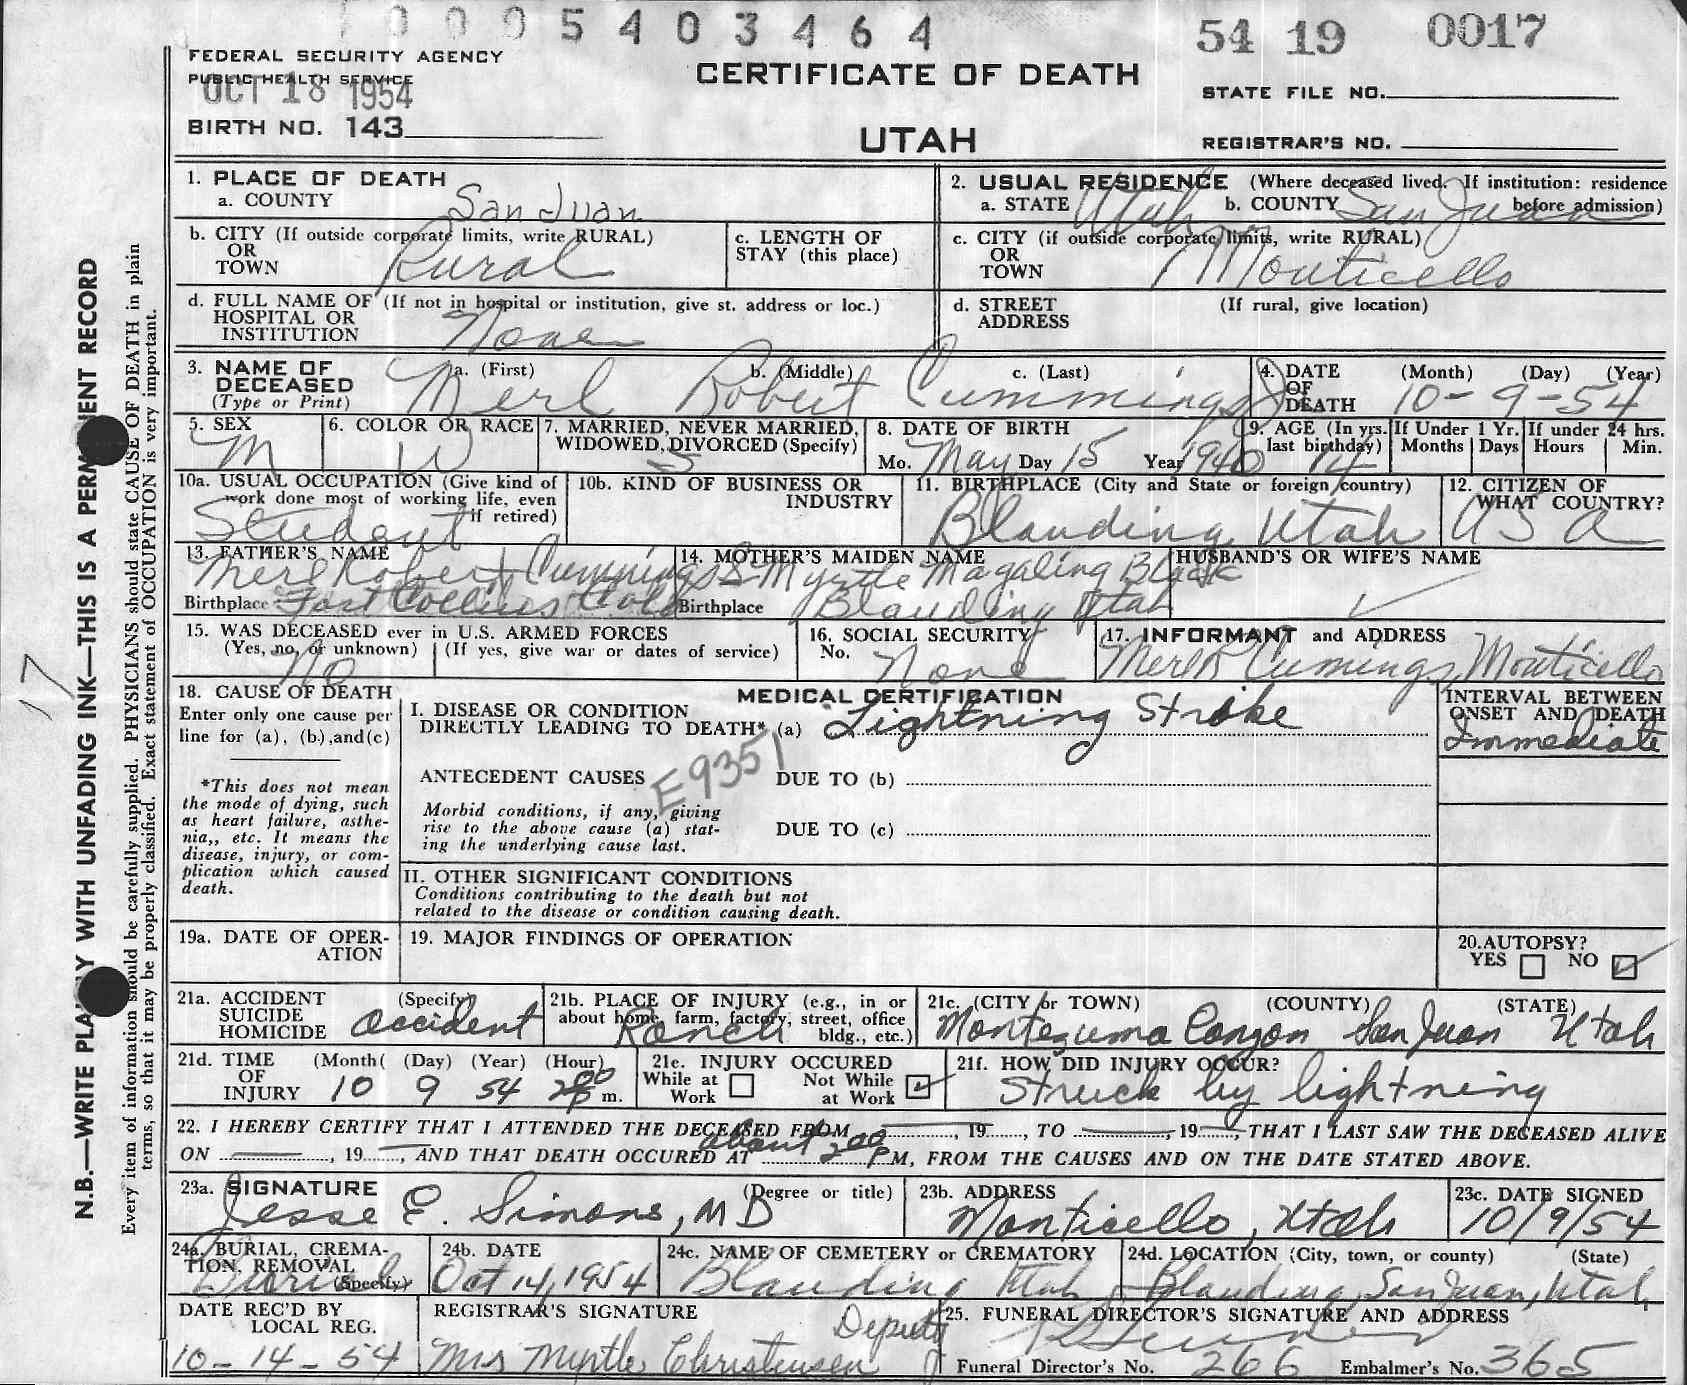 0 0 0 5 4 0 3 4 6 4
54 19 0017
FEDERAL SECURITY AGENCY
PUBLIC HEALTH SERVICE
OCT 18 1954
BIRTH NO. 143
CERTIFICATE OF DEATH
UTAH
STATE FILE NO.
REGISTRAR'S NO.
1. PLACE OF DEATH
a. COUNTY San Juan
2. USUAL RESIDENCE (Where deceased lived. If institution: residence before admission)
a. STATE Utah b. COUNTY San Juan
b. CITY (If outside corporate limits, write RURAL)
OR
TOWN Rural
c. LENGTH OF
STAY (this place)
c. CITY (if outside corporate limits, write RURAL)
OR
TOWN Monticello
d. FULL NAME OF (If not in hospital or institution, give st. address or loc.)
HOSPITAL OR
INSTITUTION None
d. STREET (If rural, give location)
ADDRESS
3. NAME OF
DECEASED
(Type or Print)
a. (First) b. (Middle) c. (Last)
Merl Robert Cummings Jr
4. DATE (Month) (Day) (Year)
OF
DEATH 10-9-54
5. SEX
M
6. COLOR OR RACE
W
7. MARRIED, NEVER MARRIED,
WIDOWED, DIVORCED (Specify)
S
8. DATE OF BIRTH
Mo. May Day 15 Year 1940
9. AGE (In yrs.
last birthday)
14
If Under 1 Yr.
Months Days
If under 24 hrs.
Hours Min.
10a. USUAL OCCUPATION (Give kind of
work done most of working life, even
if retired)
Student
10b. KIND OF BUSINESS OR
INDUSTRY
11. BIRTHPLACE (City and State or foreign country)
Blanding, Utah
12. CITIZEN OF
WHAT COUNTRY?
USA
13. FATHER'S NAME
Merl Robert Cummings Sr
Birthplace Fort Collins Colo
14. MOTHER'S MAIDEN NAME
Myrtle Magaline Black
Birthplace Blanding Utah
HUSBAND'S OR WIFE'S NAME
15. WAS DECEASED ever in U.S. ARMED FORCES
(Yes, no, or unknown) (If yes, give war or dates of service)
No
16. SOCIAL SECURITY
No. None
17. INFORMANT and ADDRESS
Merl R Cummings, Monticello
18. CAUSE OF DEATH
Enter only one cause per
line for (a), (b), and (c)
*This does not mean
the mode of dying, such
as heart failure, asthe-
nia,, etc. It means the
disease, injury, or com-
plication which caused
death.
MEDICAL CERTIFICATION
I. DISEASE OR CONDITION
DIRECTLY LEADING TO DEATH* (a) Lightning Stroke
INTERVAL BETWEEN
ONSET AND DEATH
Immediate
E9351
ANTECEDENT CAUSES DUE TO (b)
Morbid conditions, if any, giving
rise to the above cause (a) stat-
ing the underlying cause last.
DUE TO (c)
II. OTHER SIGNIFICANT CONDITIONS
Conditions contributing to the death but not
related to the disease or condition causing death.
19a. DATE OF OPER-
ATION
19. MAJOR FINDINGS OF OPERATION
20. AUTOPSY?
YES NO
21a. ACCIDENT (Specify)
SUICIDE
HOMICIDE Accident
21b. PLACE OF INJURY (e.g., in or
about home, farm, factory, street, office
bldg., etc.)
Ranch
21c. (CITY or TOWN) (COUNTY) (STATE)
Montezuma Canyon San Juan Utah
21d. TIME (Month( (Day) (Year) (Hour)
OF
INJURY 10 9 54 2:00 p m.
21e. INJURY OCCURED
While at Work Not While at Work
21f. HOW DID INJURY OCCUR?
Struck by lightning
22. I HEREBY CERTIFY THAT I ATTENDED THE DECEASED FROM , 19 , TO , 19 , THAT I LAST SAW THE DECEASED ALIVE
ON , 19 , AND THAT DEATH OCCURED AT about 2:00 PM, FROM THE CAUSES AND ON THE DATE STATED ABOVE.
23a. SIGNATURE (Degree or title)
Jesse E. Simons, MD
23b. ADDRESS
Monticello, Utah
23c. DATE SIGNED
10/9/54
24a. BURIAL, CREMA-
TION, REMOVAL
(Specify)
Burial
24b. DATE
Oct 14, 1954
24c. NAME OF CEMETERY or CREMATORY
Blanding Utah
24d. LOCATION (City, town, or county) (State)
Blanding, San Juan, Utah
DATE REC'D BY
LOCAL REG.
10-14-54
REGISTRAR'S SIGNATURE
Mrs Myrtle Christensen Deputy
25. FUNERAL DIRECTOR'S SIGNATURE AND ADDRESS
Funeral Director's No. 266 Embalmer's No. 365
N.B.—WRITE PLAINLY WITH UNFADING INK—THIS IS A PERMANENT RECORD
Every item of information should be carefully supplied. PHYSICIANS should state CAUSE OF DEATH in plain
terms, so that it may be properly classified. Exact statement of OCCUPATION is very important.
17